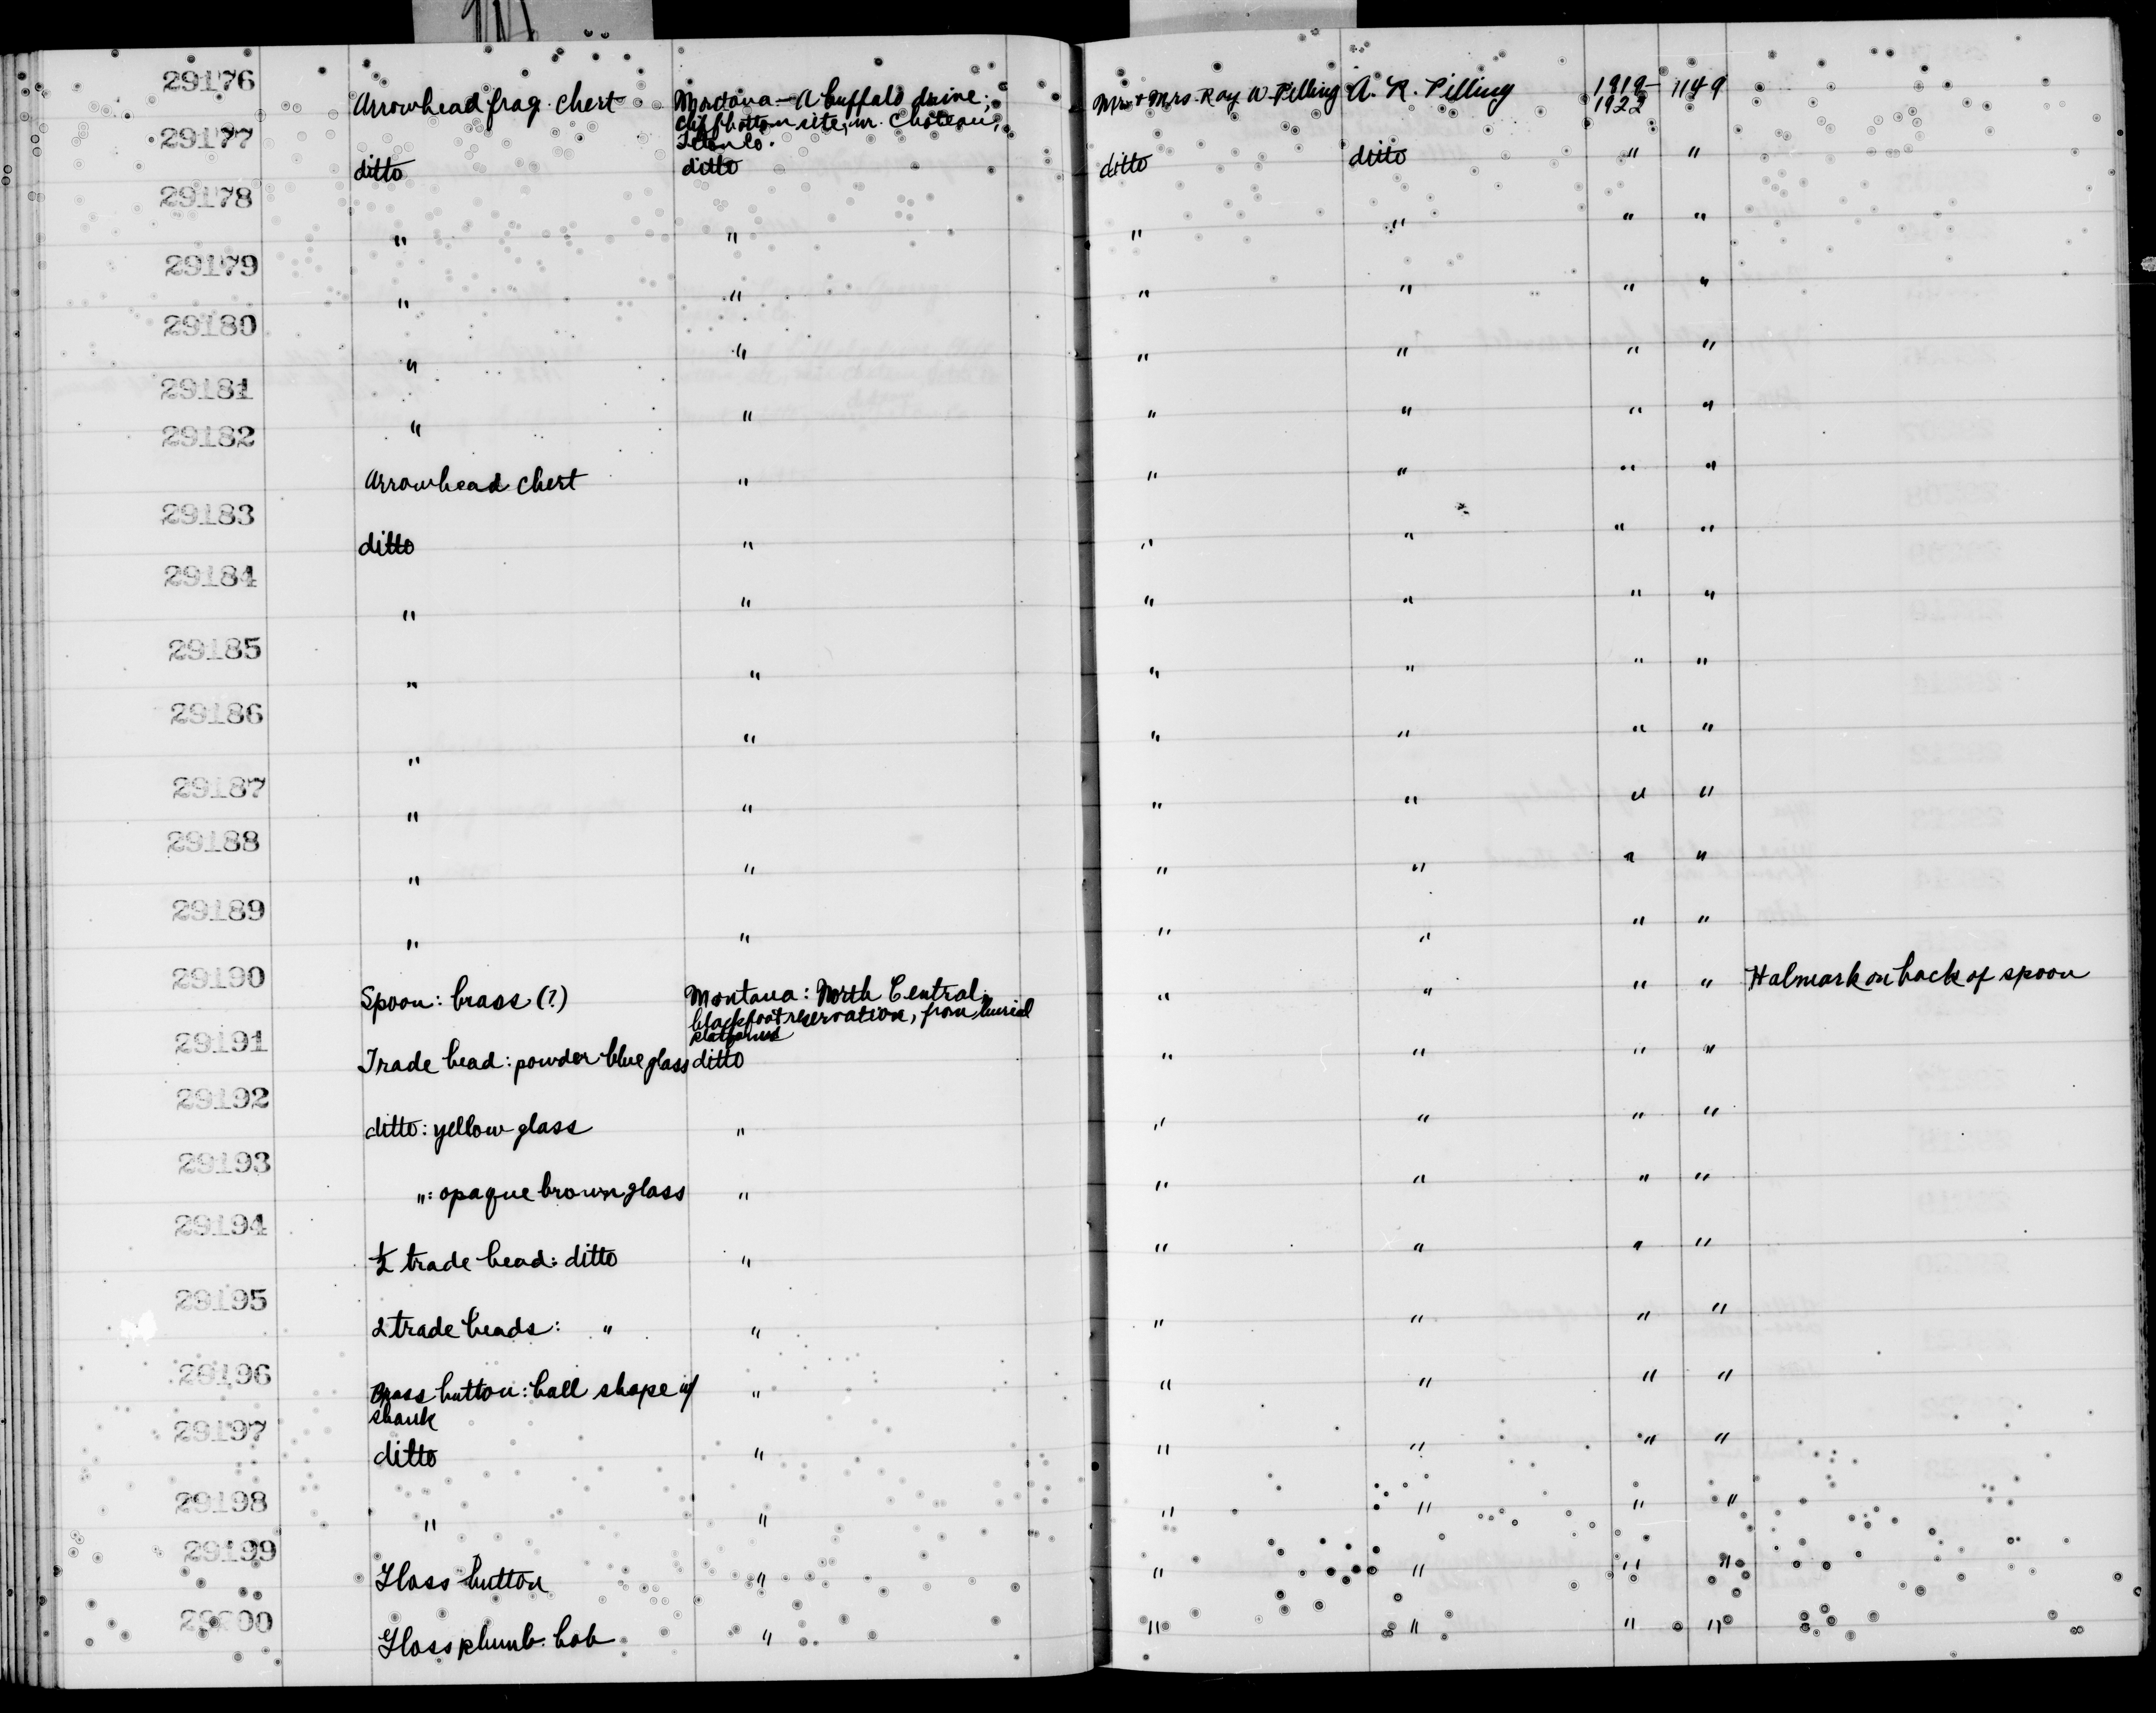 29176 Arrowhead frag. chert Montana - A buffalo drive; Mr + Mrs. Ray W. Pilling A. R. Pilling 1919- 1149
cliff bottom site, nr. Choteau, 1922
Teton Co.
29177 ditto ditto ditto ditto " "
29178 " " " " " "
29179 " " " " " "
29180 " " " " " "
29181 " " " " " "
29182 Arrowhead chert " " " " "
29183 ditto " " " " "
29184 " " " " " "
29185 " " " " " "
29186 " " " " " "
29187 " " " " " "
29188 " " " " " "
29189 " " " " " "
29190 Spoon: brass (?) Montana: North Central, " " " " Halmark on back of spoon
blackfoot reservation, from burial
platforms
29191 Trade bead: powder blue glass ditto " " " "
29192 ditto: yellow glass " " " " "
29193 ": opaque brown glass " " " " "
29194 ½ trade bead: ditto " " " " "
29195 2 trade beads: " " " " " "
29196 Brass button: ball shape w/ " " " " "
shank
29197 ditto " " " " "
29198 " " " " " "
29199 Glass button " " " " "
29200 Glass plumb bob " " " " "